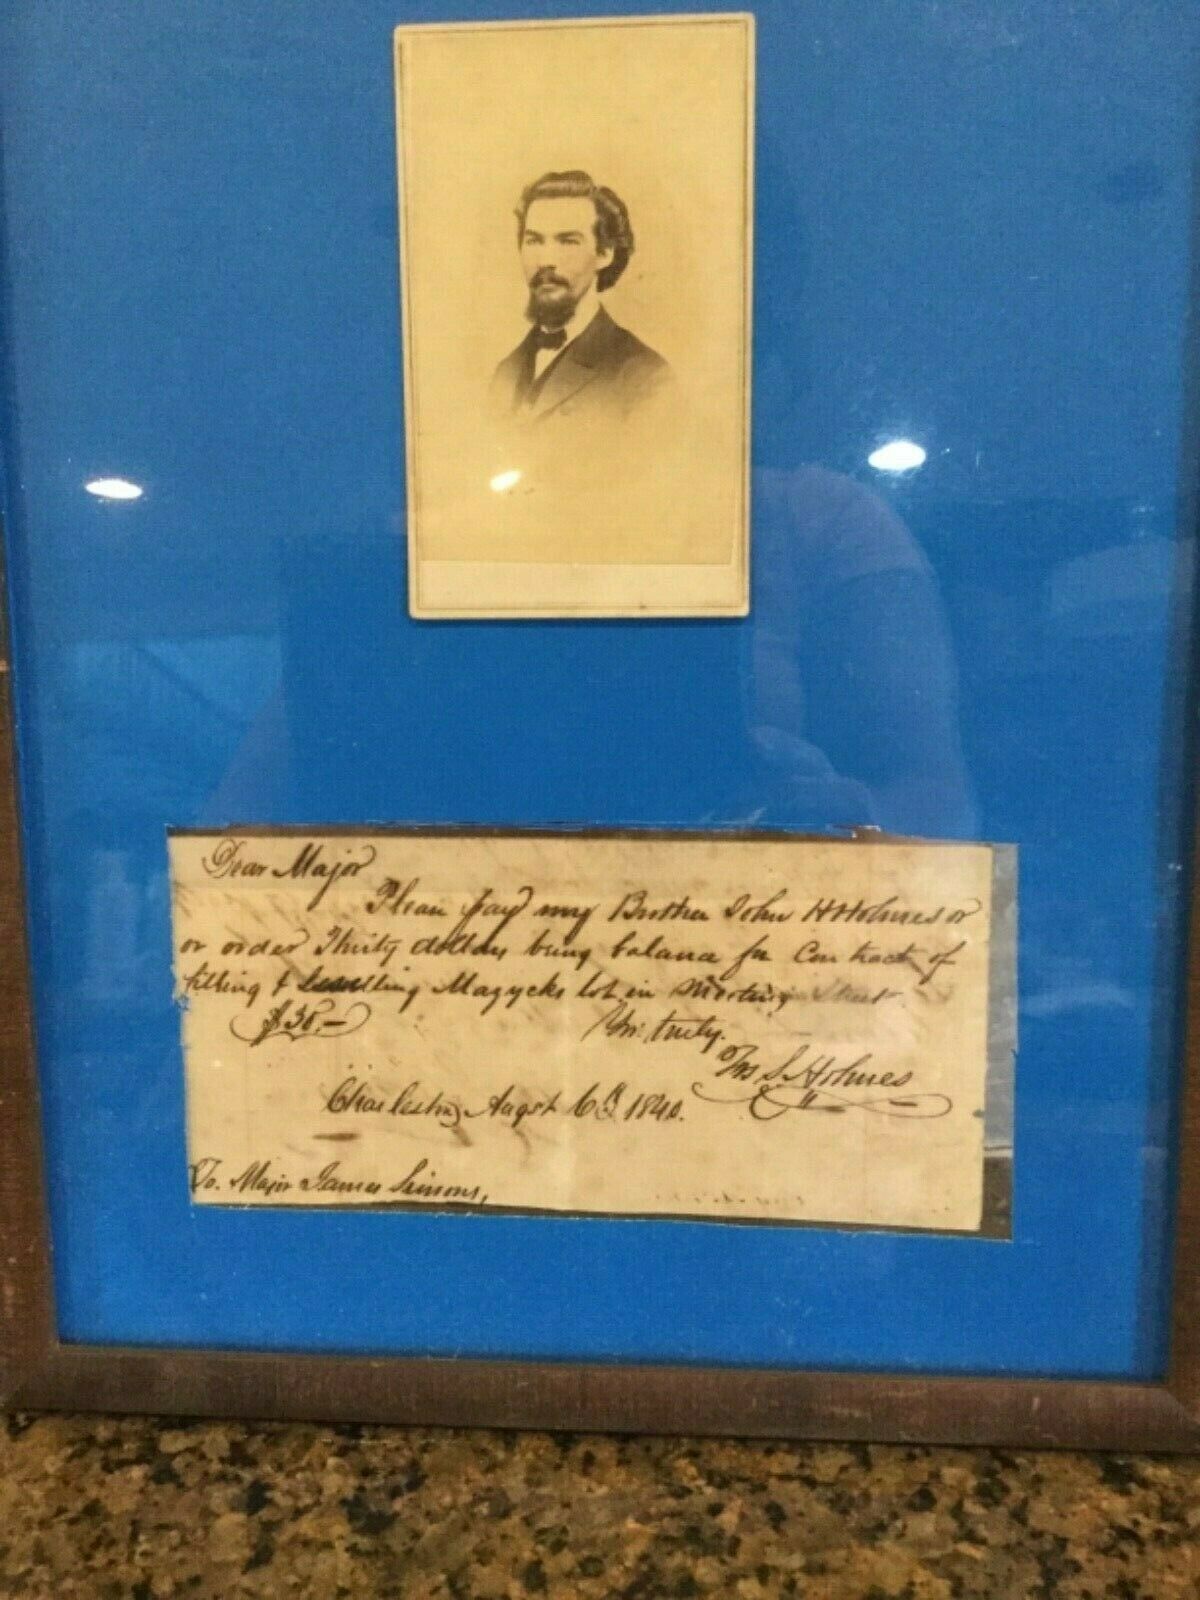 Dear Major
Please pay my Brother John H Holmes or
or order Thirty dollars being balance for Contract of
filling & levelling Magycks lot in Street
$30.–
Yrs truly.
Holmes
Charleston, Augst 6th 1840.
To. Major James Simons,